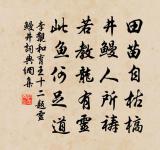 田苗自枯槁
井鰻人所禱
若教龍有靈
此魚何足道
李覯和育王十二題靈
鰻井詞典網集